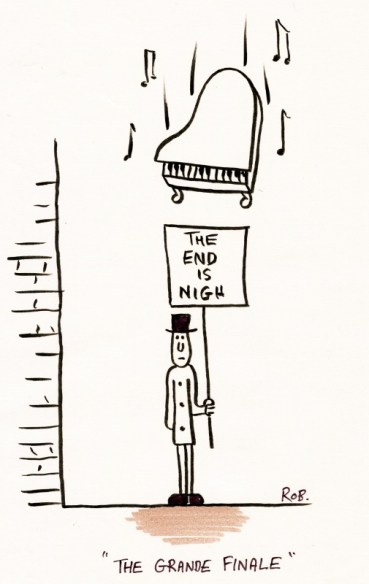 THE
END
IS
NIGH
ROB.
"THE GRANDE FINALE"